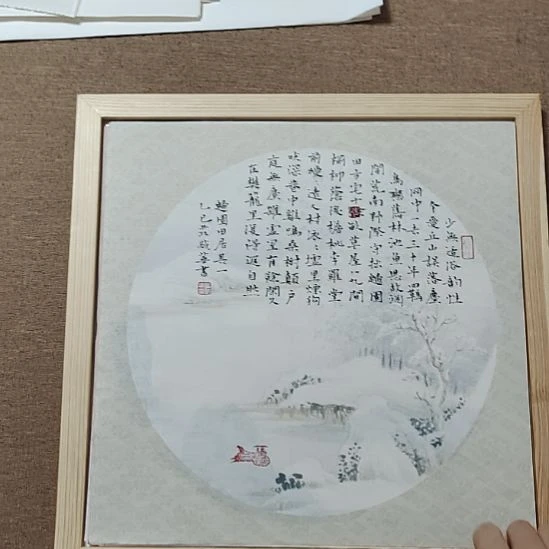 少無適俗韵性
本愛丘山誤落塵
網中一去三十年羈
鳥戀舊林池魚思故淵
開荒南野際守拙歸園
田方宅十畝草屋八九間
榆柳蔭後檐桃李羅堂
前曖遠人村依〻墟里煙狗
吠深巷中雞鳴桑樹顛戶
庭無塵雜虛室有餘閒久
在樊籠里復得返自然
歸園田居其一
乙巳書